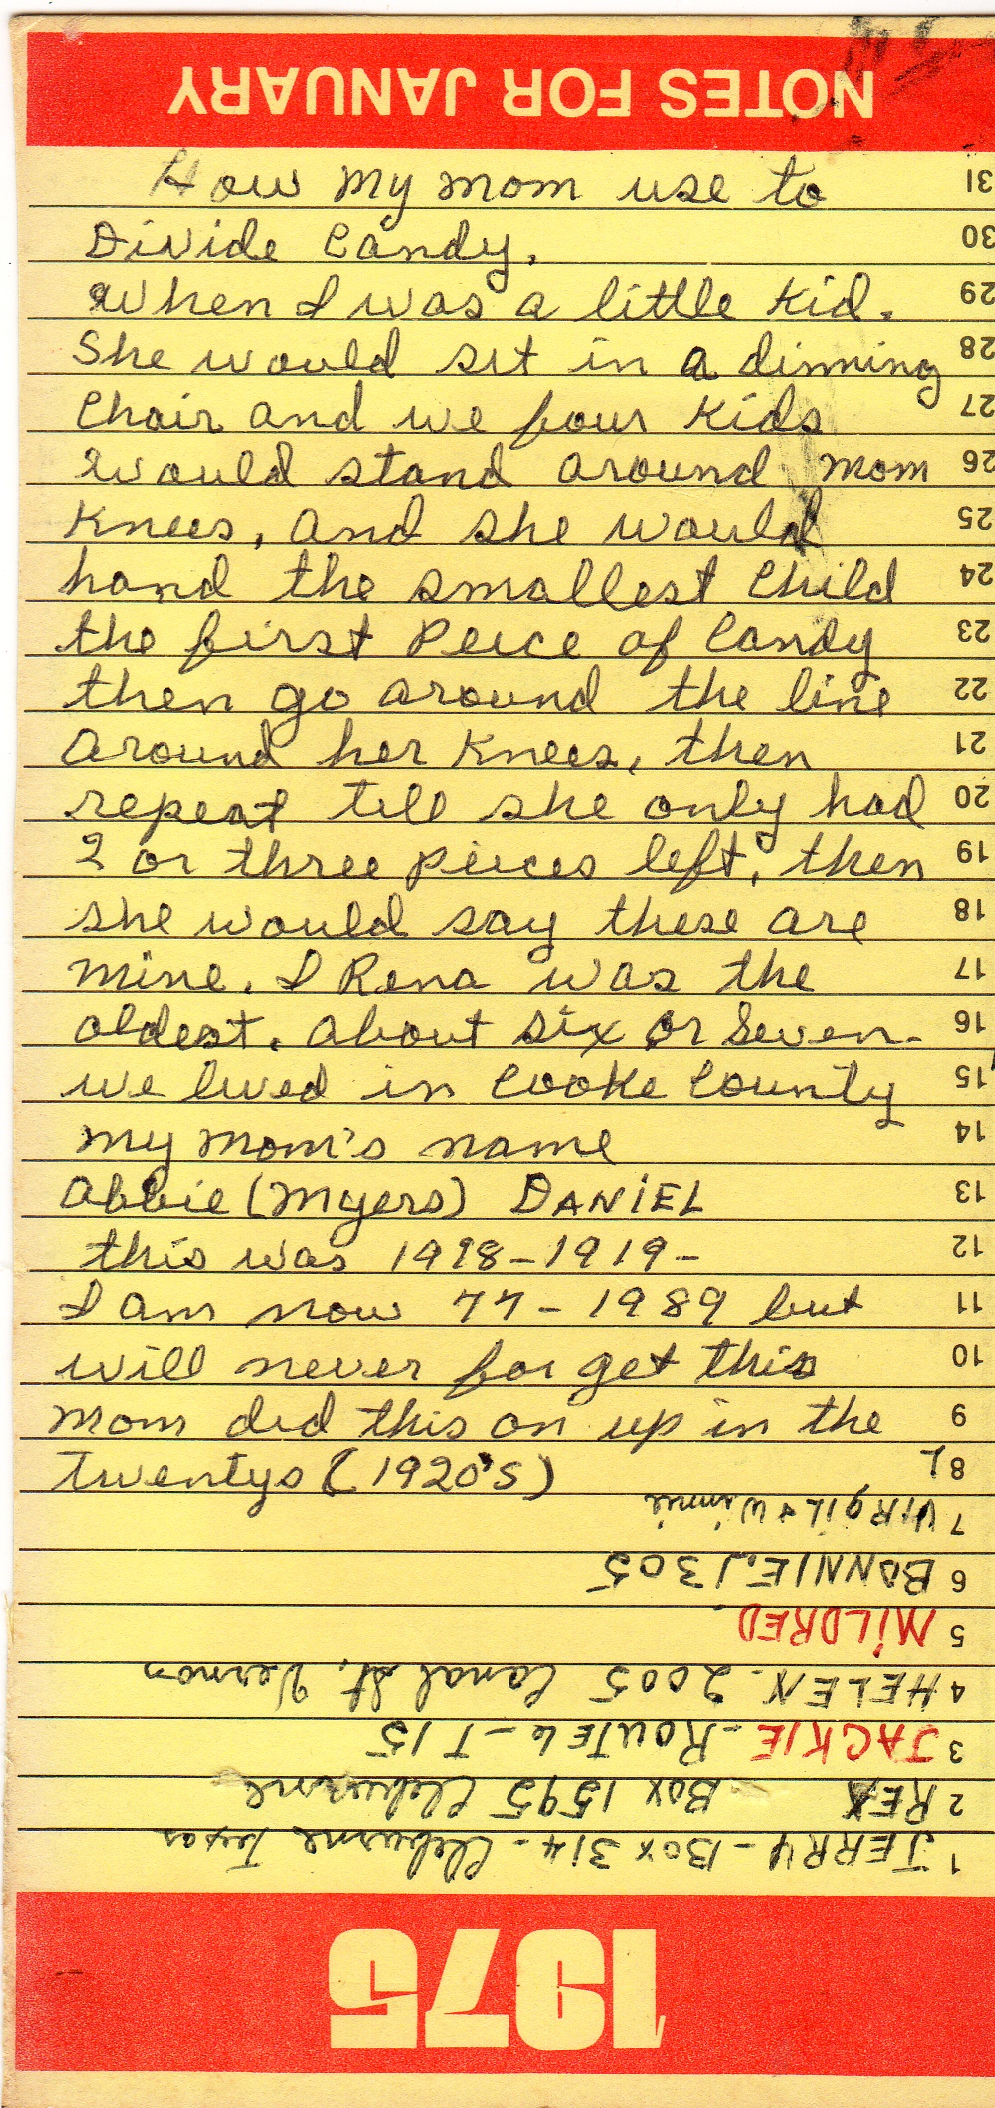 NOTES FOR JANUARY
31 How my mom use to
30 Divide Candy.
29 When I was a little kid.
28 She would sit in a dinning
27 Chair and we four kids
26 would stand around mom
25 Knees, and she would
24 hand the smallest Child
23 the first Peice of Candy
22 then go around the line
21 around her knees, then
20 repeat till she only had
19 2 or three pieces left, then
18 she would say these are
17 mine. I Rena was the
16 oldest. about six or Seven-
15 we lived in Cooke County
14 my mom's name
13 Abbie (Myers) DANiEL
12 this was 1918-1919-
11 I am now 77 - 1989 but
10 will never forget this
9 mom did this on up in the
8 twentys (1920's)
7 VIRgiL + Winnie
6 BONNIE. 1305
5 MiLDRED
4 HELEN - 2005 Canal St. Vernon
3 JACKIE - ROUTE 6 - T15
2 REX Box 1595 Cleburne
1 JERRY - Box 314 - Cleburne Texas
1975